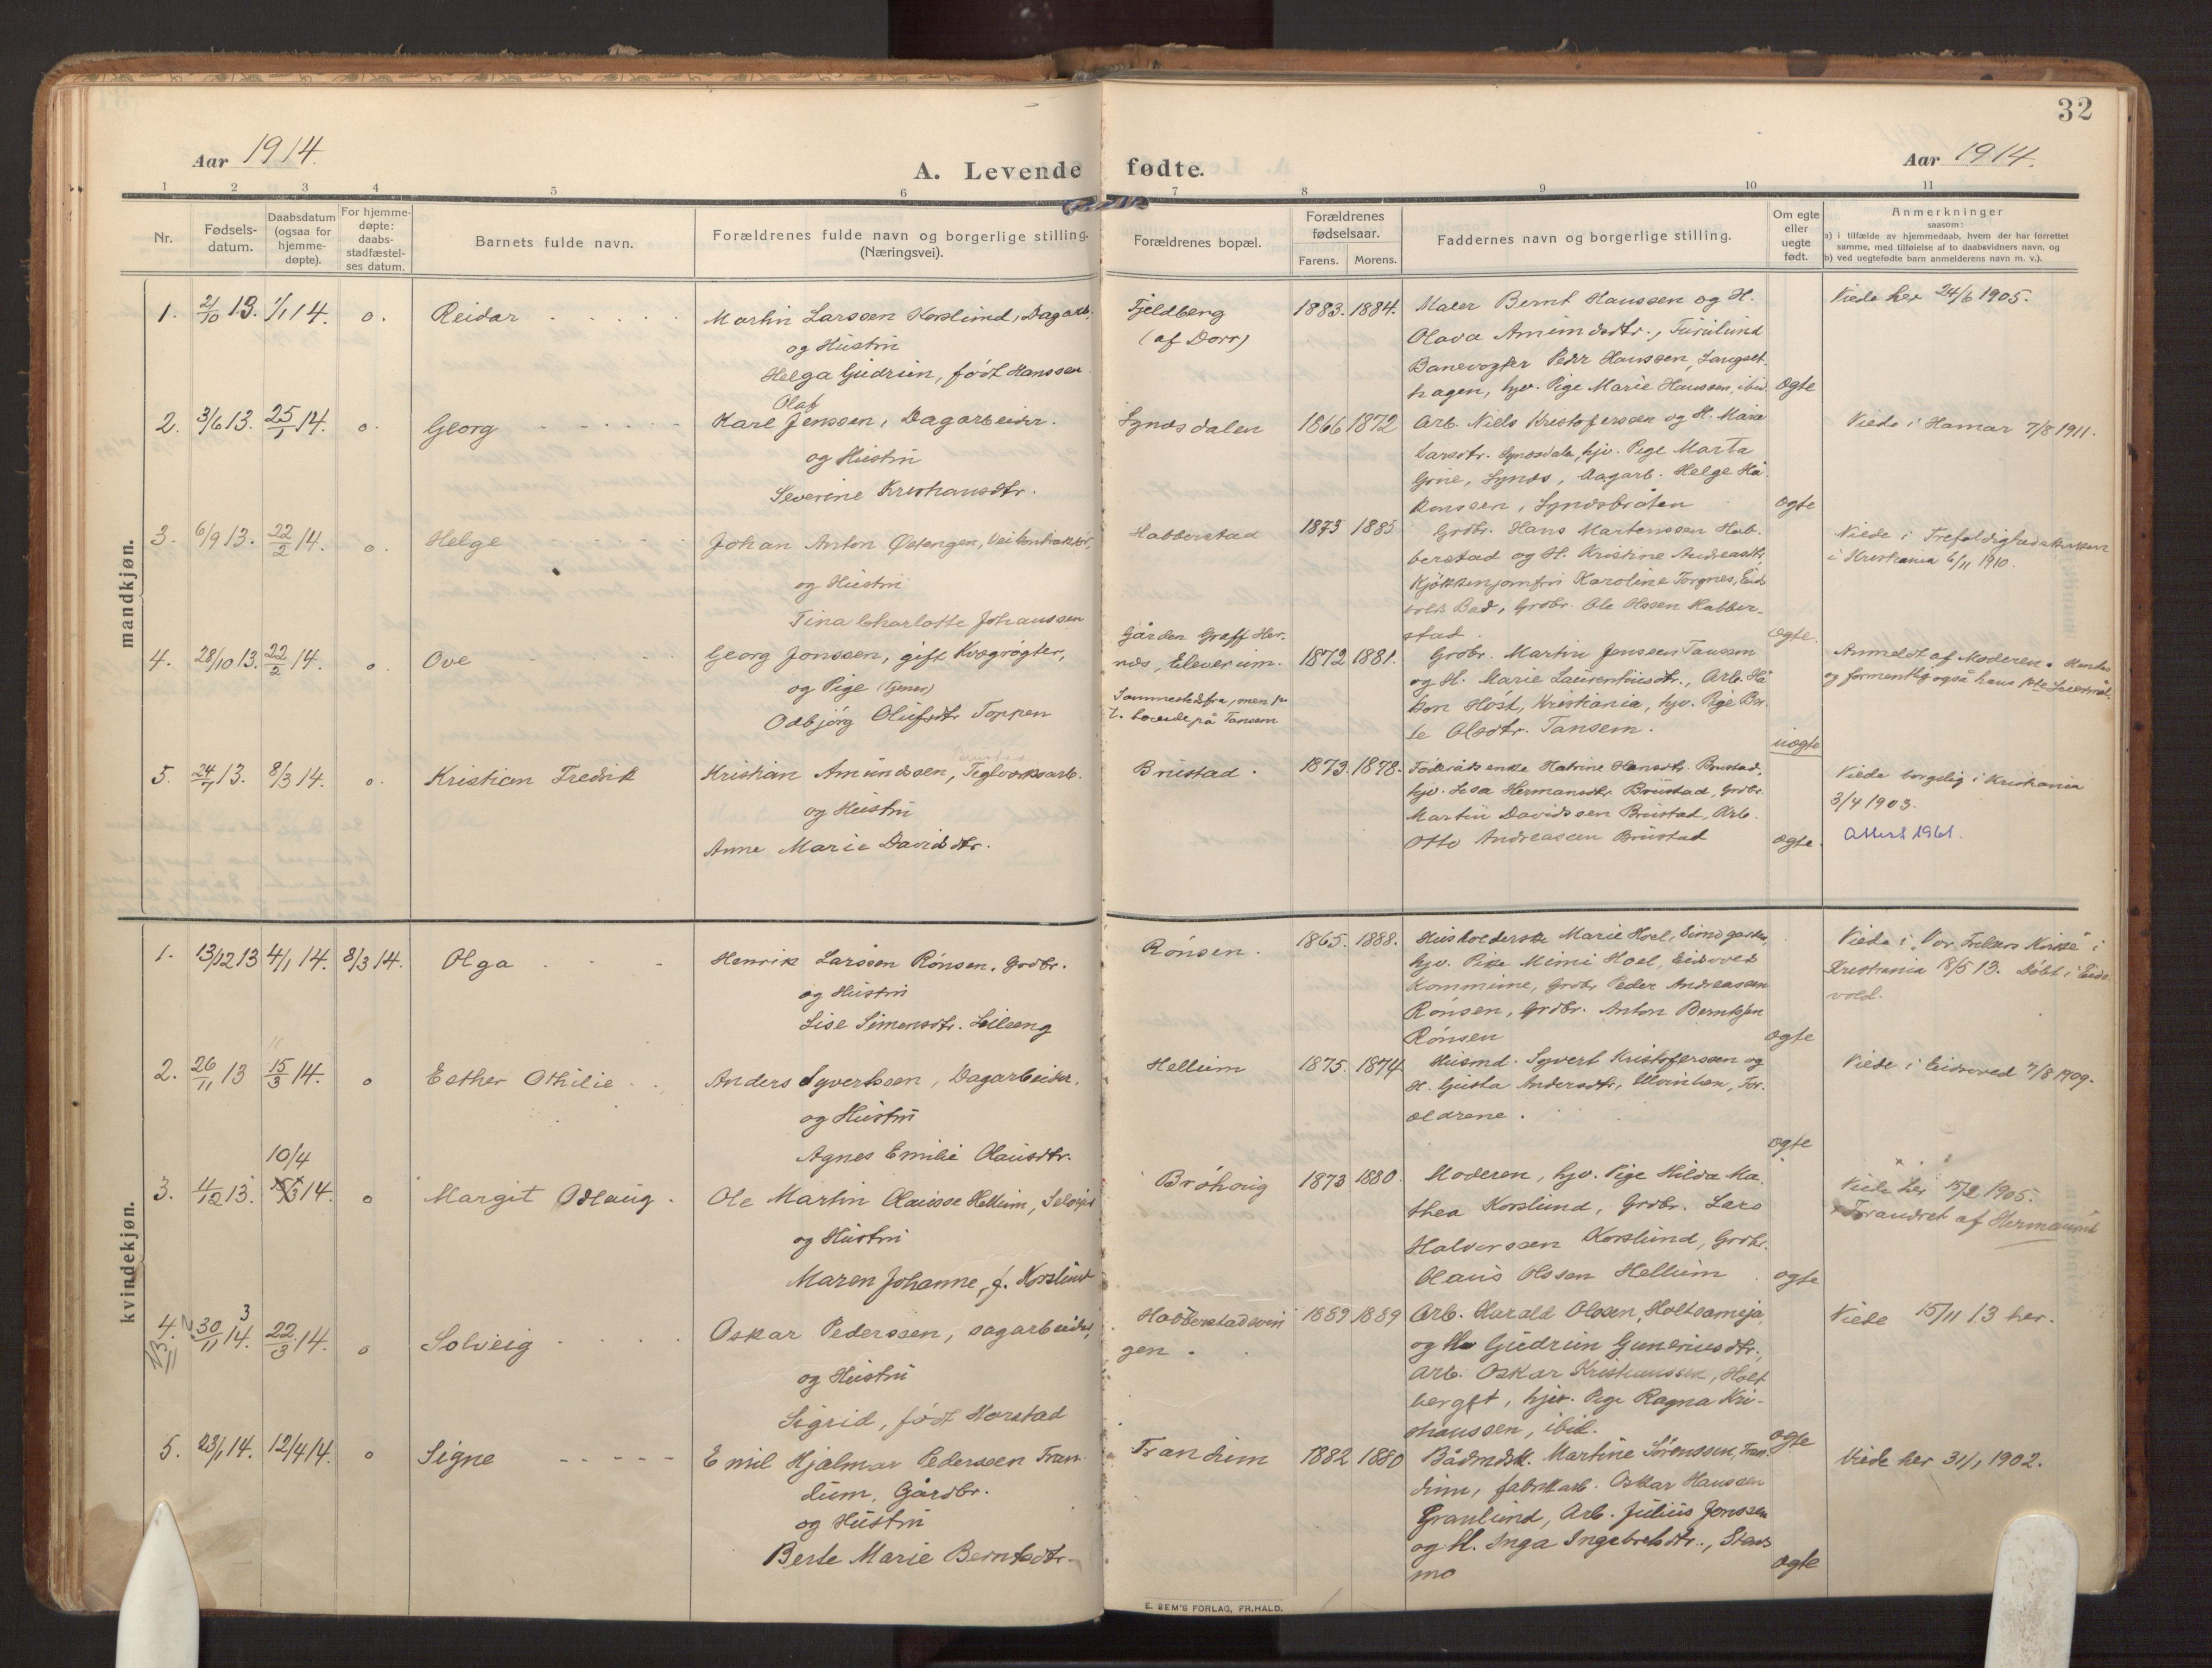 32
Aar 1914.
A. Levende fødte.
Aar 1914.
1 2 3 4 5 6 7 8 9 10 11
Nr.
Fødsels-
datum.
Daabsdatum
(ogsaa for
hjemme-
døpte).
For hjemme-
døpte:
daabs-
stadfæstel-
ses datum.
Barnets fulde navn.
Forældrenes fulde navn og borgerlige stilling.
(Næringsvei).
Forældrenes bopæl.
Forældrenes
fødselsaar.
Farens. Morens.
Faddernes navn og borgerlige stilling.
Om egte
eller
uegte
født.
Anmerkninger
saasom:
a) i tilfælde av hjemmedaab, hvem der har forrettet
samme, med tilføielse af to daabsvidners navn, og
b) ved uegtefødte barn anmelderens navn m. v.).
mandkjøn.
1. 21/10 13. 1/1 14. o. Reidar
Martin Larssen Korslund, Dagarb.
og Hustru
Helga Gudrun, født Hanssen
Fjeldberg
(af Dorr)
1883. 1884.
Maler Bernt Hanssen og H.
Olava Amundsdtr., Furulund
Banevogter Peder Hanssen, Langset-
hagen, hjv. Pige Marie Hanssen, ibid.
ægte
Viede her 24/6 1905.
2. 3/6 13. 25/1 14. o. Georg
Olaf
Karl Jenssen, Dagarbeider.
og Hustru
Severine Kristiansdtr.
Lynæsdalen
1866 1872
Arb. Niels Kristofersen og H. Marie
Larsdtr. Lynæsdalen, hjv. Pige Marta
Grine, Lynæs, Dagarb. Helge Hå-
konssen, Lynæsbråten
ægte
Viede i Hamar 7/8 1911.
3. 6/9 13. 22/2 14. o. Helge
Johan Anton Østengen, Veikontraktør,
og Hustru
Tina Charlotte Johanssen
Habberstad
1873 1885
Grdbr. Hans Martenssen Hab-
berstad og H. Kristine Andreasdtr,
Kjøkkenjomfru Karoline Torgnes, Eids
volds Bad, Grdbr. Ole Olssen Habber-
stad.
ægte.
Viede i Trefoldighedskirken
i Kristiania 6/11 1910.
4. 28/10 13. 22/2 14. o. Ove
Georg Jonssen, gift Kvægrøgter,
og Pige (Tjener)
Odbjørg Olufsdtr Toppen
Gården Graff Her-
næs, Elverum.
Sammestedsfra, men p.
t. boende på Tansem
1872 1881.
Grdbr. Martin Jenssen Tansem
og H. Marie Laurentiusdtr., Arb. Hå
kon Høst, Kristiania, hjv. Pige Ber-
te Olsdtr. Tansem.
uægte
Anmeldt af Moderen. Hendes
og formentlig også hans 1ste Leiermål.
5. 24/1 13. 8/3 14. o. Kristian Fredrik
Kristian Amundssen, Teglværksarb.
og Hustru
Anne Marie Davidsdtr.
Brustad.
1873. 1878.
Føderådsenke Katrine Hansdtr. Brustad,
hjv. Lisa Hermansdtr. Brustad, Grdbr.
Martin Davidssen Brustad, Arb.
Otto Andreassen Brustad
ægte.
Viede borgelig i Kristiania
3/4 1903.
Attest 1961.
kvindekjøn.
1. 13/12 13 4/1 14. 8/3 14. Olga
Henrik Larssen Rønsen, Grdbr.
og Hustru
Lise Simensdtr. Leileeng
Rønsen.
1865. 1888.
Husholderske Marie Hoel,
hjv. Pike Mimi Hoel, Eidsvold
Kommune, Grdbr Peder Andreassen
Rønsen, Grdbr. Anton Berntsen
Rønsen
ægte
Viede i „Vor Frelsers Kirke" i
Kristiania 18/5 13. Døbt i Eids-
vold.
2. 26/11 13 15/3 14. o Esther Othilie
Anders Syvertssen, Dagarbeider.
og Hustru
Agnes Emilie Olausdtr.
Hellum
1875. 1874
Husmd. Syvert Kristoferssen og
H. Gusta Andersdtr, Ulvinhen, For-
ældrene.
ægte
Viede i Eidsvold 7/8 1909.
10/4
3. 4/12 13. 15/3 14. o Margit Odlaug.
Ole Martin Olausse Hellum, Selveier
og Hustru
Maren Johanne, f. Korslund
Bråhaug
1873 1880.
Moderen, hjv. Pige Hilda Ma-
thea Korslund, Grdbr. Lars
Halvorssen Korslund, Grdbr.
Olaus Olssen Hellum
ægte
Viede her 15/2 1905.
x Forandret af Hermanrud
4. 30/11 14. 3 22/3 14. o Solveig
Oskar Pederssen, sagarbeider,
og Hustru
Sigrid, født Horstad
Habberstadsvin
gen.
1889 1889
Arb. Harald Olssen, Holtsameja
og Gudrun Guneriusdtr.,
Arb. Oskar Kristianssen, Holt
berget, hjv. Pige Ragna Kri-
stianssen, ibid.
ægte
Viede 15/11 13 her.
5. 23/1 14. 12/4 14. o Signe
Emil Hjalmar Pederssen Tran-
dum, Gårdbr.
og Hustru
Berte Marie Berntsdtr.
Trandum
1882 1880
Bådmdsk. Martine Sørenssen, Tran-
dum, fabrikarb. Oskar Hanssen
Granlund, Arb. Julius Jonssen
og H. Inga Ingebretsdtr., Stens
mo
ægte
Viede her 31/1 1902.
E. SEM'S FORLAG, FR.HALD.